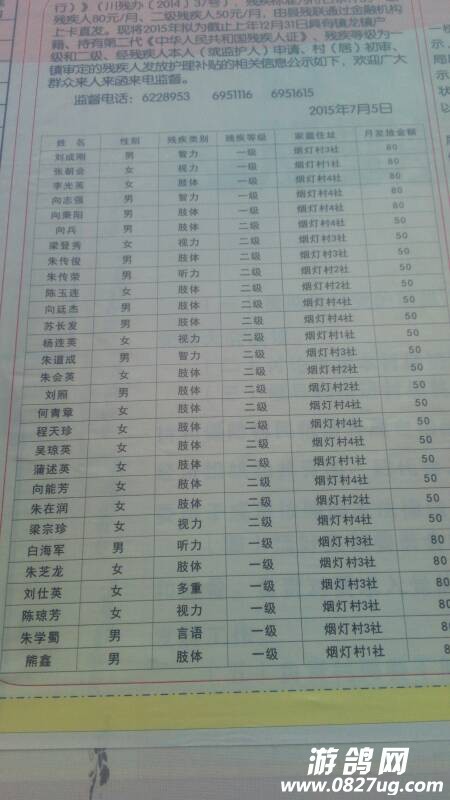 行)》(川残办(2014)37号),
残疾人80元/月、二级残疾人50元/月,由县残联通过金融机构
上卡直发。现将2015年拟为截止上年12月31日具有镇龙镇户
籍、持有第二代《中华人民共和国残疾人证》、残疾等级为一
级和二级、经残疾人本人(或监护人)申请、村(居)初审、
镇审定的残疾人发放护理补贴的相关信息公示如下,欢迎广大
群众来人来函来电监督。
监督电话:6228953 6951116 6951615
2015年7月5日
姓 名 性别 残疾类别 残疾等级 家庭住址 月发放金额
刘成刚 男 智力 一级 烟灯村3社 80
张朝会 女 视力 一级 烟灯村1社 80
李光英 女 肢体 一级 烟灯村4社 80
向志强 男 智力 一级 烟灯村4社 80
向秉阳 男 肢体 一级 烟灯村4社 80
向兵 男 肢体 二级 烟灯村4社 50
梁登秀 女 视力 二级 烟灯村2社 50
朱传俊 男 肢体 二级 烟灯村3社 50
朱传荣 男 听力 二级 烟灯村2社 50
陈玉连 女 肢体 二级 烟灯村2社 50
向廷杰 男 肢体 二级 烟灯村4社 50
苏长发 男 肢体 二级 烟灯村4社 50
杨连英 女 视力 二级 烟灯村1社 50
朱道成 男 智力 二级 烟灯村3社 50
朱会英 女 肢体 二级 烟灯村2社 50
刘照 男 肢体 二级 烟灯村2社 50
何青章 女 肢体 二级 烟灯村4社 50
程天珍 女 肢体 二级 烟灯村4社 50
吴琼英 女 肢体 二级 烟灯村3社 50
蒲述英 女 肢体 二级 烟灯村1社 50
向能芳 女 肢体 二级 烟灯村4社 50
朱在润 女 肢体 二级 烟灯村2社 50
梁宗珍 女 视力 二级 烟灯村4社 50
白海军 男 听力 一级 烟灯村3社 80
朱芝龙 女 肢体 一级 烟灯村3社 80
刘仕英 女 多重 一级 烟灯村3社 80
陈琼芳 女 视力 一级 烟灯村3社 80
朱学蜀 男 言语 一级 烟灯村3社 80
熊鑫 男 肢体 一级 烟灯村1社 80
游鸽网
www.0827ug.com